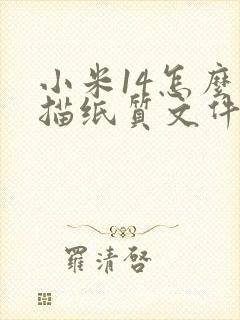 小米14怎麼
描纸質文件
羅清啓